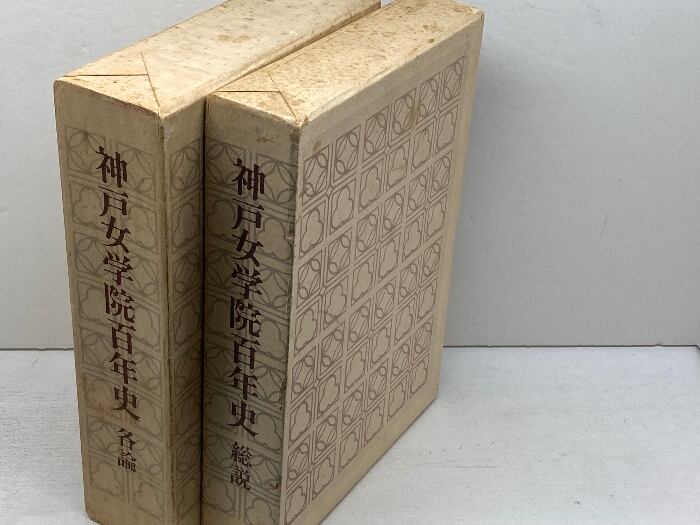 神戸女学院百年史 各論
神戸女学院百年史 総説